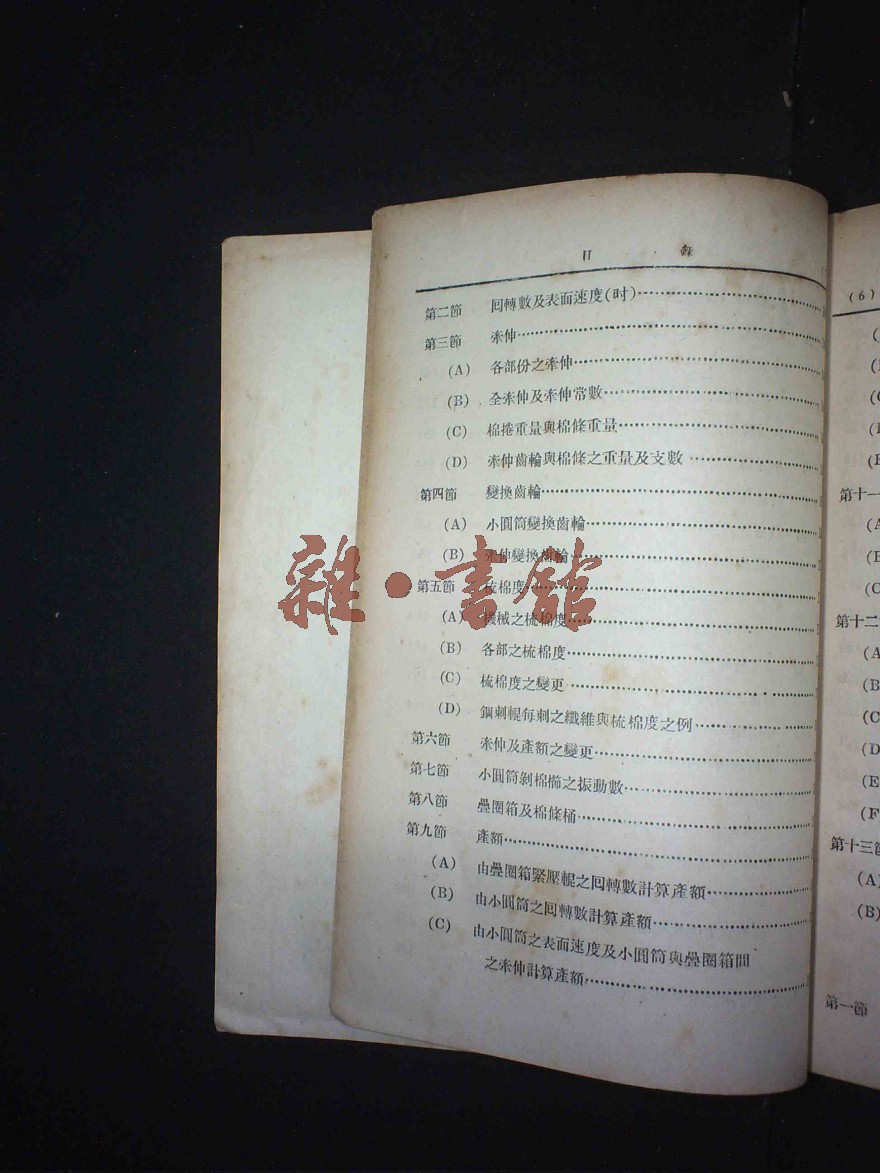 目 錄
第二節 回轉數及表面速度(吋)
第三節 牽伸
(A) 各部份之牽伸
(B) 全牽伸及牽伸常數
(C) 棉捲重量與棉條重量
(D) 牽伸齒輪與棉條之重量及支數
第四節 變換齒輪
(A) 小圓筒變換齒輪
(B) 牽伸變換齒輪
第五節 梳棉度
(A) 機械之梳棉度
(B) 各部之梳棉度
(C) 梳棉度之變更
(D) 鋼刺輥每刺之纖維與梳棉度之例
第六節 牽伸及產額之變更
第七節 小圓筒剝棉櫛之振動數
第八節 疊圈箱及棉條桶
第九節 產額
(A) 由疊圈箱緊壓輥之回轉數計算產額
(B) 由小圓筒之回轉數計算產額
(C) 由小圓筒之表面速度及小圓筒與疊圈箱間
之牽伸計算產額
雜·書館
(6)
第十一
(C
第十二
(A
(B
(C
(D
(E
(F
第十三節
(A)
(B)
第一節